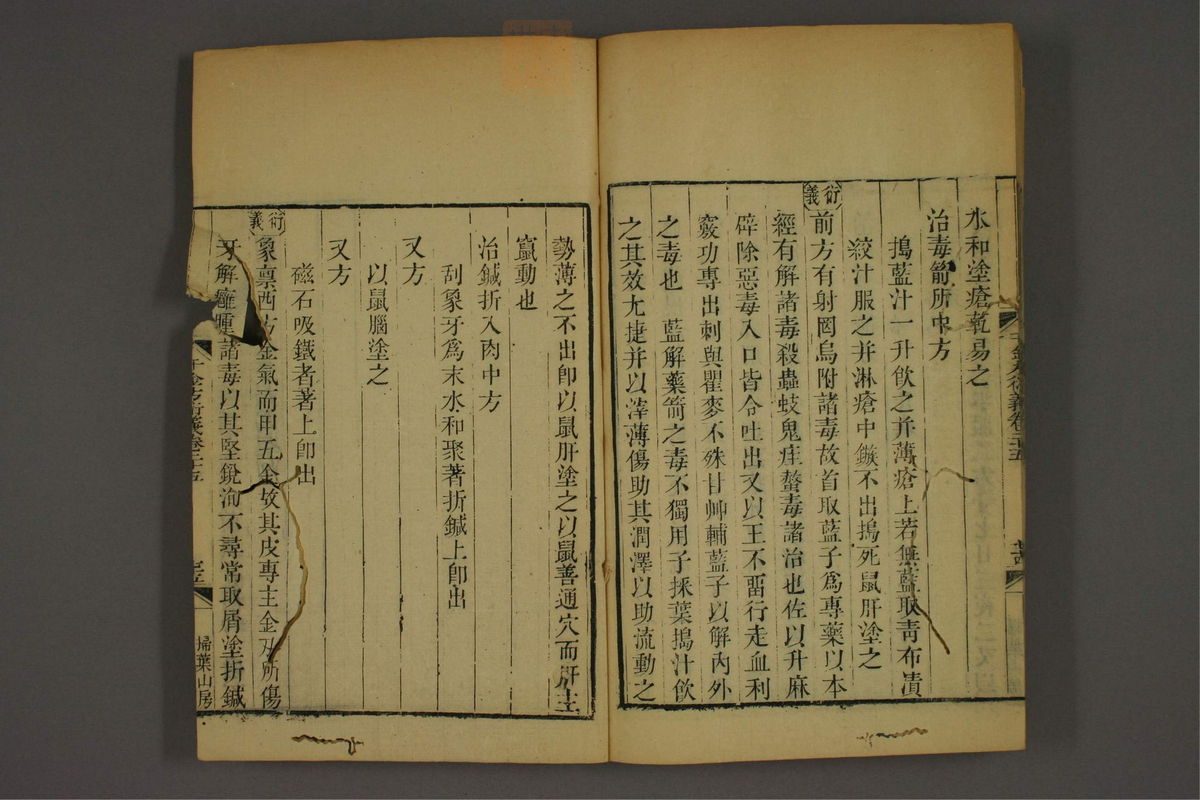 水和塗瘡乾易之
治毒箭所中方
搗藍汁一升飲之并薄瘡上若無藍取青布漬
絞汁服之并淋瘡中鏃不出搗死鼠肝塗之
衍義
前方有射罔烏附諸毒故首取藍子爲專藥以本
經有解諸毒殺蟲蚑鬼疰螫毒諸治也佐以升麻
辟除惡毒入口皆令吐出又以王不畱行走血利
竅功專出刺與瞿麥不殊甘艸輔藍子以解內外
之毒也 藍解藥箭之毒不獨用子採葉搗汁飮
之其效尤捷并以滓薄傷助其潤澤以助流動之
勢薄之不出卽以鼠肝塗之以鼠善通穴而肝主
竄動也
治鍼折入肉中方
刮象牙爲末水和聚著折鍼上卽出
又方
以鼠腦塗之
又方
磁石吸鐵者著上卽出
衍義
象禀西方金氣而甲五金故其皮專主金刃所傷
牙解癰腫諸毒以其堅銳洵不尋常取屑塗折鍼
千金方衍義卷二十五
掃葉山房